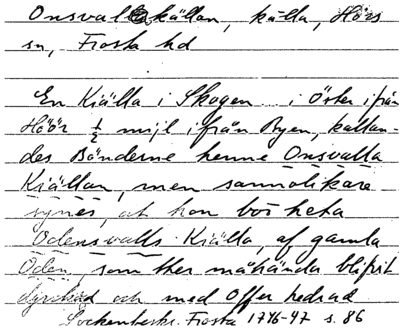 Onsvallakällan, källa, Hörs
sn, Frosta hd
En Kiälla i Skogen i Öster ifrån
Höör ½ mijl ifrån Byen, kallan-
des Bönderne henne Onsvalla
Kiällan, men sannolikare
synes, at hon bör heta
Odensvalls Kiälla, af gamla
Oden, som ther måhända blifvit
dyrckad och med Offer hedrad
Sockenbeskr. Frosta 1746-47 s. 86